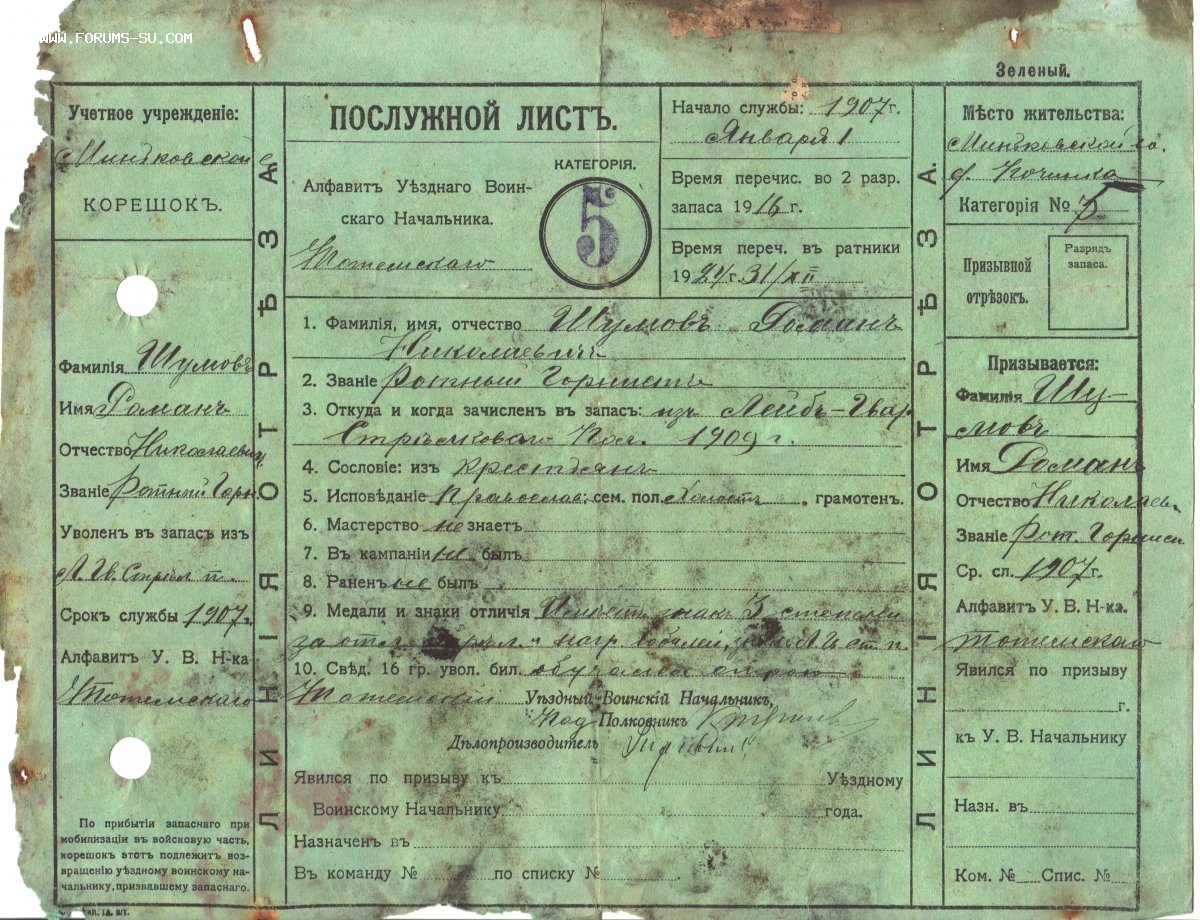 WWW.FORUMS-SU.COM
Зеленый.
Учетное учрежденіе:
КОРЕШОКЪ.
Фамилія Шумовъ
Имя Романъ
Отчество Николаевич
Званіе Ротный Горн.
Уволенъ въ запасъ изъ
Л. Гв. Стрѣл п.
Срокъ службы 1907 г.
Алфавитъ У. В. Н-ка
Тотемскаго
По прибытіи запаснаго при
мобилизаціи въ войсковую часть,
корешокъ этотъ подлежитъ воз-
вращенію уѣздному воинскому на-
чальнику, призвавшему запаснаго.
ЛИНІЯ ОТРѢЗА.
ПОСЛУЖНОЙ ЛИСТЪ.
Алфавитъ Уѣзднаго Воин-
скаго Начальника.
Тотемскаго
КАТЕГОРІЯ.
5
Начало службы: 1907 г.
Января 1
Время перечис. во 2 разр.
запаса 1916 г.
Время переч. въ ратники
1924 г. 31/XII
1. Фамилія, имя, отчество Шумовъ Романъ
Николаевичъ
2. Званіе Ротный Горнистъ
3. Откуда и когда зачисленъ въ запасъ: изъ Лейбъ-Гвар
Стрѣлковаго Пол. 1909 г.
4. Сословіе: изъ крестьянъ
5. Исповѣданіе Православ; сем. пол. Холостъ, грамотенъ.
6. Мастерство не знаетъ
7. Въ кампаніи не былъ
8. Раненъ не былъ
9. Медали и знаки отличія Имѣетъ знакъ 3 степени
за отл.
10. Свѣд. 16 гр. увол. бил. обучался строю
Тотемскій Уѣздный Воинскій Начальникъ,
Полковникъ
Дѣлопроизводитель
Явился по призыву къ Уѣздному
Воинскому Начальнику года.
Назначенъ въ
Въ команду № по списку №
ЛИНІЯ ОТРѢЗА.
Мѣсто жительства:
Категорія № 5
Призывной
отрѣзокъ.
Разрядъ
запаса.
Призывается:
Фамилія Шу-
мовъ
Имя Романъ
Отчество Николаев.
Званіе Рот. Горнист
Ср. сл. 1907 г.
Алфавитъ У. В. Н-ка.
Тотемскаго
Явился по призыву
г.
къ У. В. Начальнику
Назн. въ
Ком. № Спис. №